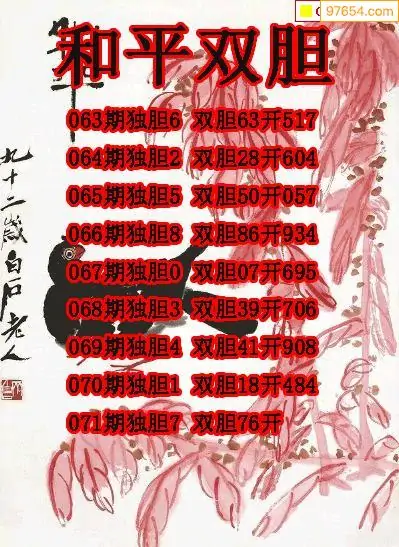 97654.com
和平双胆
063期独胆6 双胆63开517
064期独胆2 双胆28开604
065期独胆5 双胆50开057
066期独胆8 双胆86开934
067期独胆0 双胆07开695
068期独胆3 双胆39开706
069期独胆4 双胆41开908
070期独胆1 双胆18开484
071期独胆7 双胆76开
九十二岁白石老人